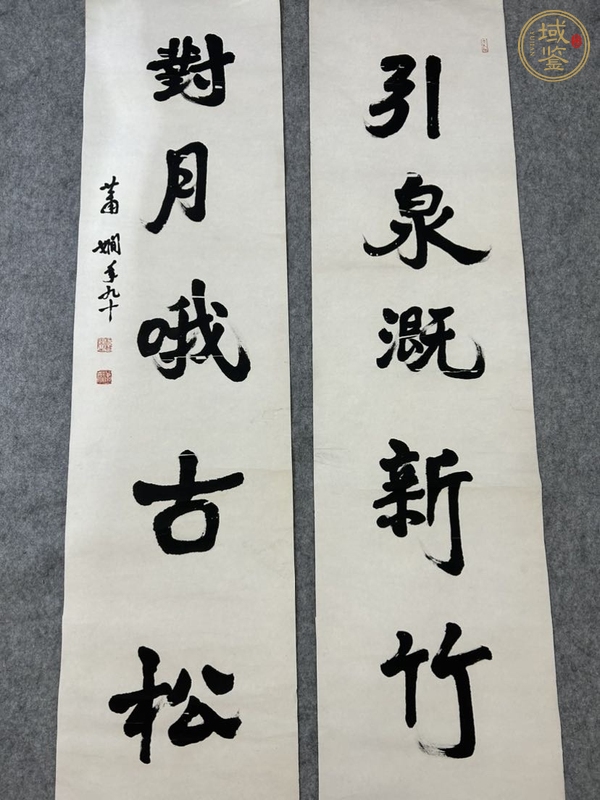 引泉溉新竹
對月哦古松
蕭嫻年九十
域鉴